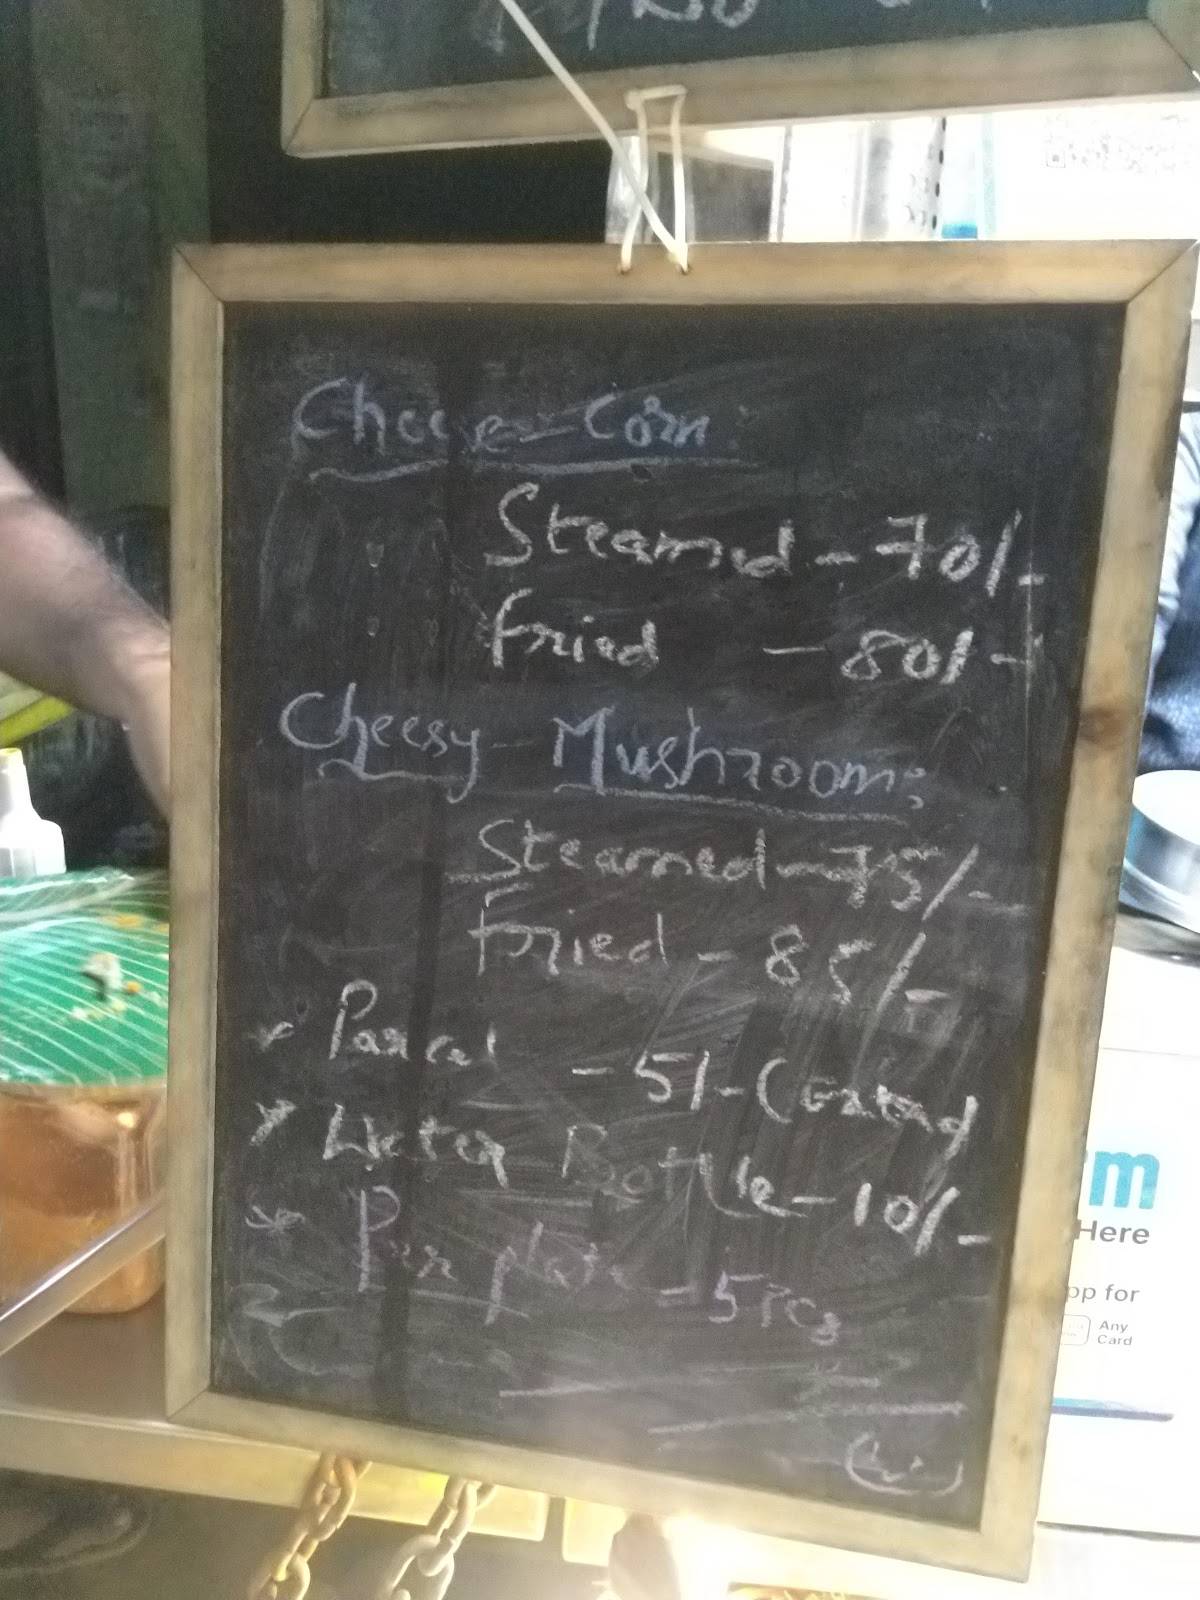 Cheese-Corn:
Steamed - 70/-
Fried - 80/-
Cheesy Mushroom:
Steamed - 75/-
Fried - 85/-
Parcel - 5/- (Extra)
Water Bottle - 10/-
Per plate - 5 Pcs
m
Here
pp for
Any
Card